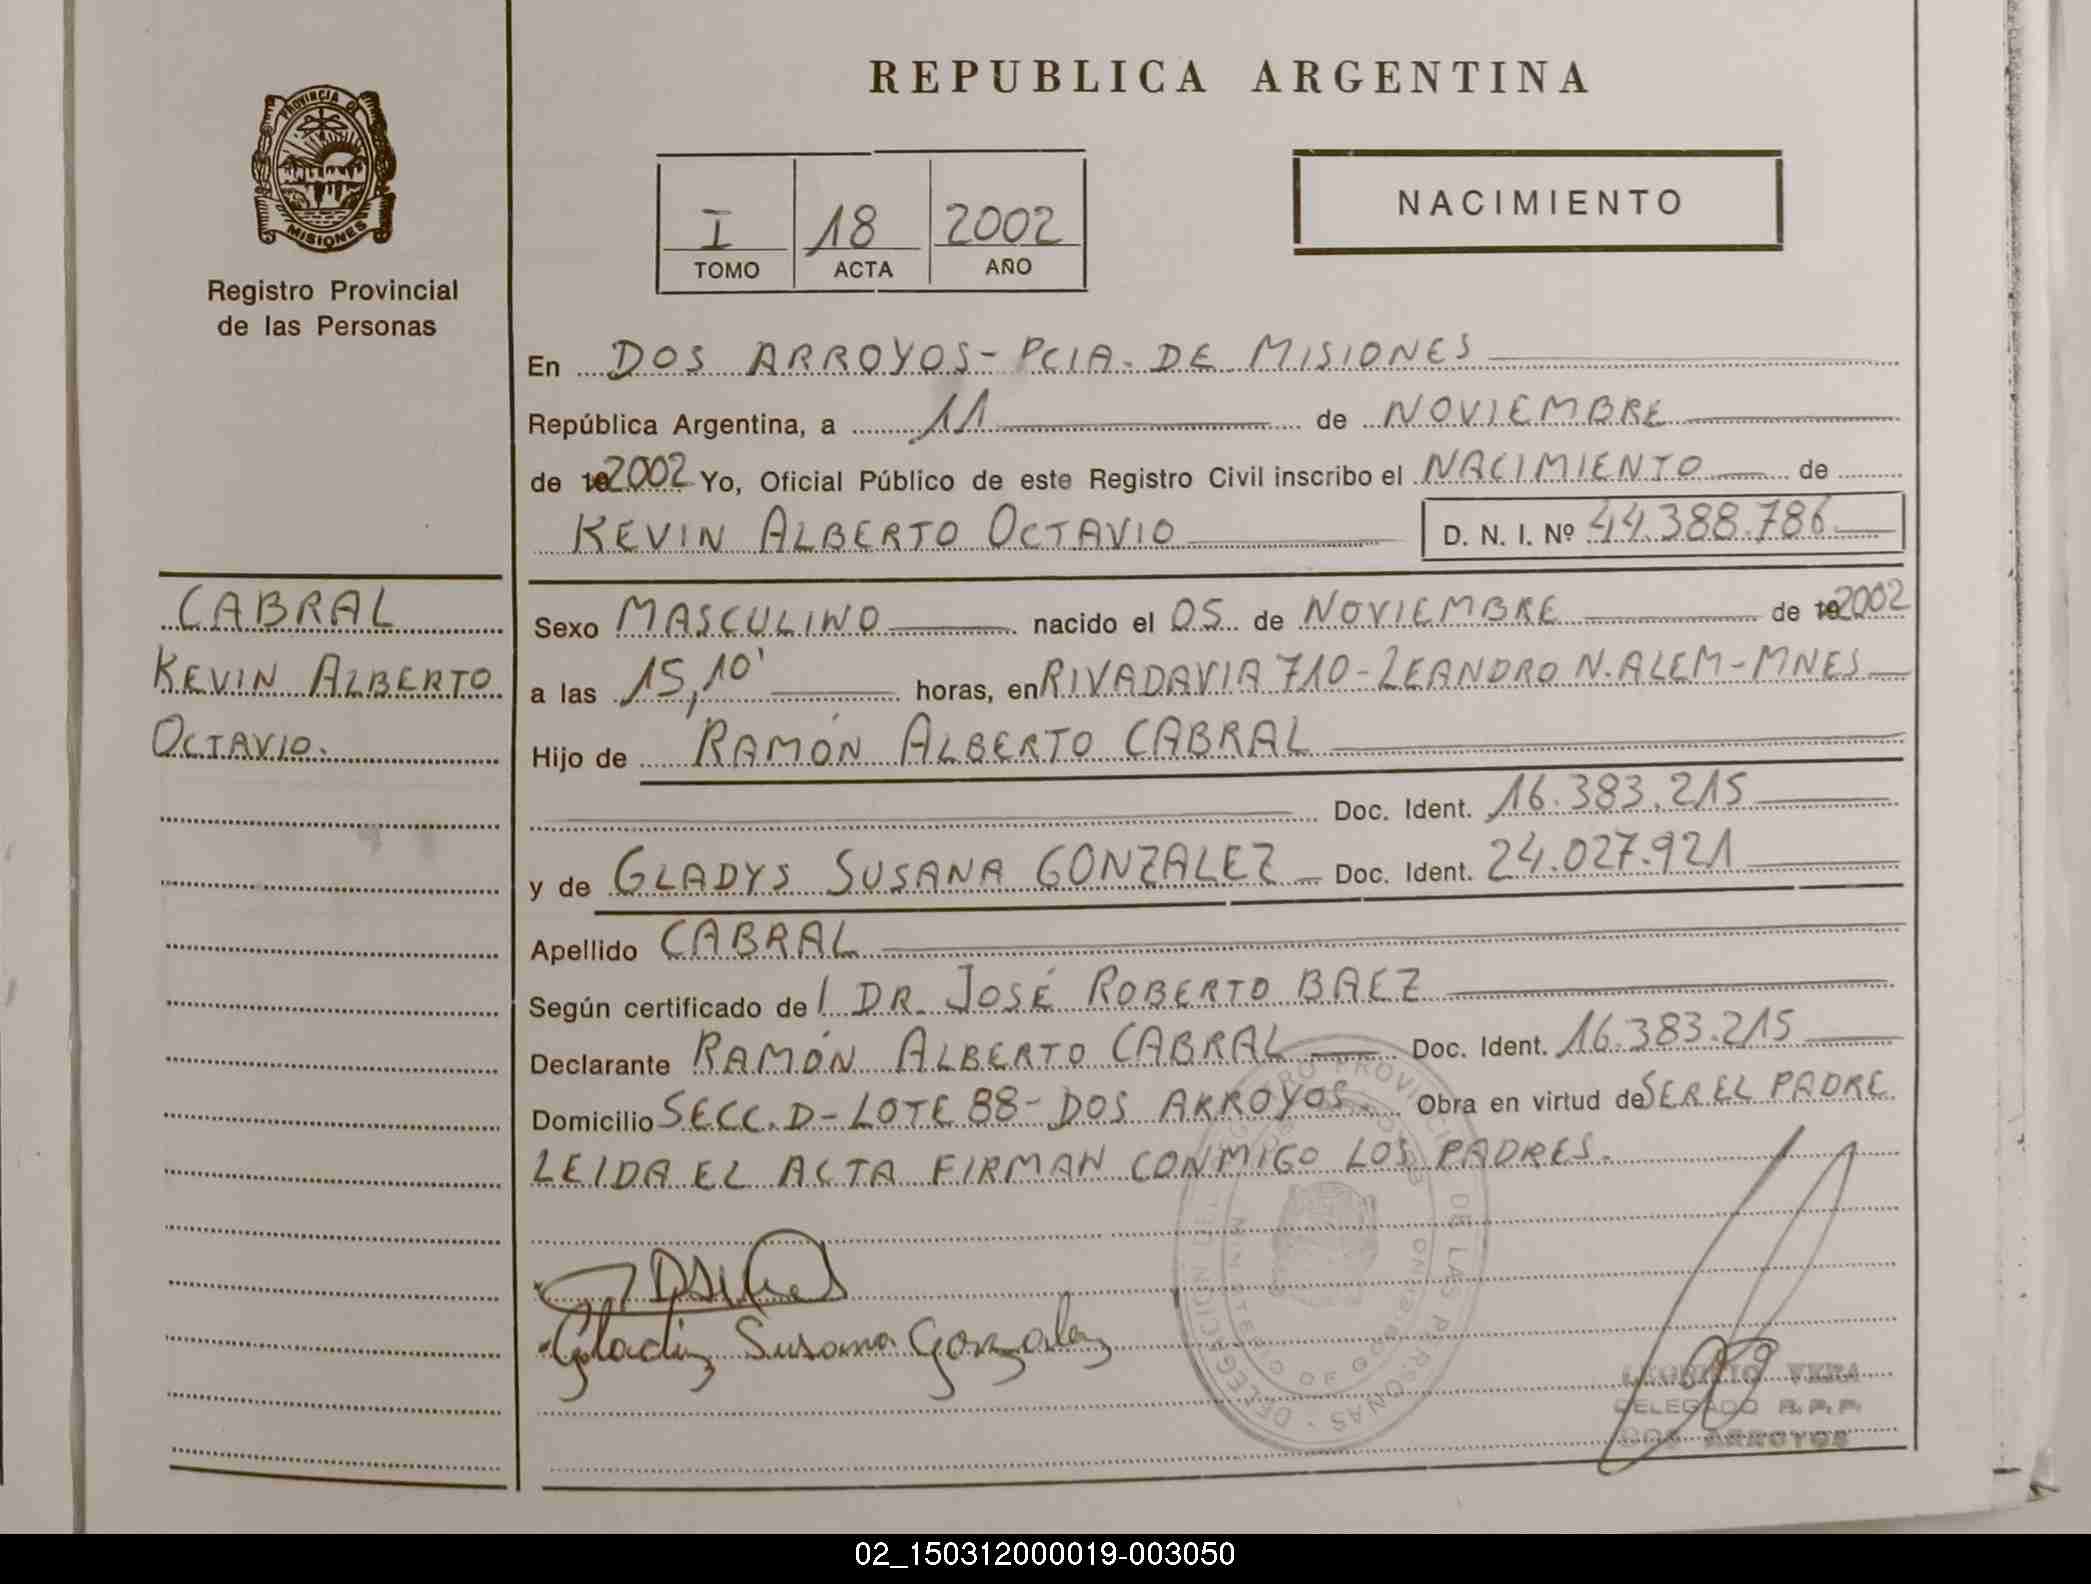 REPUBLICA ARGENTINA
PROVINCIA DE
MISIONES
Registro Provincial
de las Personas
I 18 2002
TOMO ACTA AÑO
NACIMIENTO
En DOS ARROYOS - PCIA. DE MISIONES
República Argentina, a 11 de NOVIEMBRE
de 2002 Yo, Oficial Público de este Registro Civil inscribo el NACIMIENTO de
KEVIN ALBERTO OCTAVIO D. N. I. Nº 44.388.786
CABRAL
KEVIN ALBERTO
OCTAVIO.
Sexo MASCULINO nacido el 05 de NOVIEMBRE de 2002
a las 15,10' horas, en RIVADAVIA 710 - LEANDRO N. ALEM - MNES
Hijo de RAMÓN ALBERTO CABRAL
Doc. Ident. 16.383.215
y de GLADYS SUSANA GONZALEZ Doc. Ident. 24.027.921
Apellido CABRAL
Según certificado de DR. JOSÉ ROBERTO BAEZ
Declarante RAMÓN ALBERTO CABRAL Doc. Ident. 16.383.215
Domicilio SECC. D - LOTE 88 - DOS ARROYOS. Obra en virtud de SER EL PADRE
LEIDA EL ACTA FIRMAN CONMIGO LOS PADRES.
REGISTRO PROVINCIAL DE LAS PERSONAS - DELEGACION
MINISTERIO DE GOBIERNO
DOS ARROYOS
Susana Gonzalez
VERA
DELEGADO R. P. P.
DOS ARROYOS
02_150312000019-003050